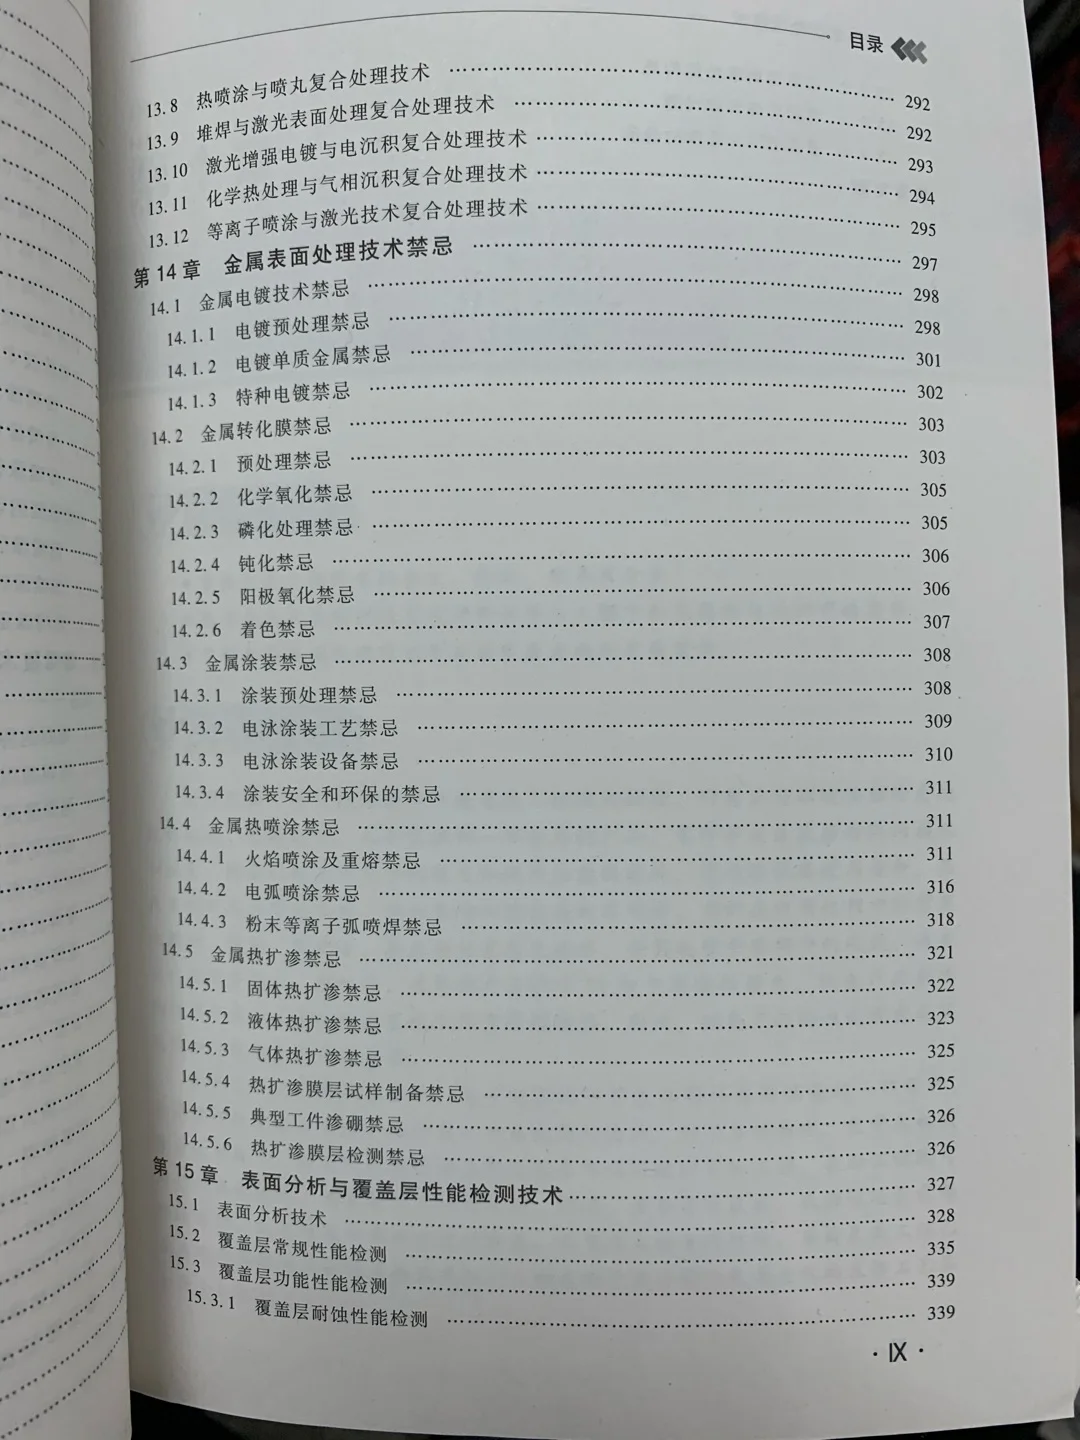 目录
13.8 热喷涂与喷丸复合处理技术 …… 292
13.9 堆焊与激光表面处理复合处理技术 …… 292
13.10 激光增强电镀与电沉积复合处理技术 …… 293
13.11 化学热处理与气相沉积复合处理技术 …… 294
13.12 等离子喷涂与激光技术复合处理技术 …… 295
第14章 金属表面处理技术禁忌 …… 297
14.1 金属电镀技术禁忌 …… 298
14.1.1 电镀预处理禁忌 …… 298
14.1.2 电镀单质金属禁忌 …… 301
14.1.3 特种电镀禁忌 …… 302
14.2 金属转化膜禁忌 …… 303
14.2.1 预处理禁忌 …… 303
14.2.2 化学氧化禁忌 …… 305
14.2.3 磷化处理禁忌 …… 305
14.2.4 钝化禁忌 …… 306
14.2.5 阳极氧化禁忌 …… 306
14.2.6 着色禁忌 …… 307
14.3 金属涂装禁忌 …… 308
14.3.1 涂装预处理禁忌 …… 308
14.3.2 电泳涂装工艺禁忌 …… 309
14.3.3 电泳涂装设备禁忌 …… 310
14.3.4 涂装安全和环保的禁忌 …… 311
14.4 金属热喷涂禁忌 …… 311
14.4.1 火焰喷涂及重熔禁忌 …… 311
14.4.2 电弧喷涂禁忌 …… 316
14.4.3 粉末等离子弧喷焊禁忌 …… 318
14.5 金属热扩渗禁忌 …… 321
14.5.1 固体热扩渗禁忌 …… 322
14.5.2 液体热扩渗禁忌 …… 323
14.5.3 气体热扩渗禁忌 …… 325
14.5.4 热扩渗膜层试样制备禁忌 …… 325
14.5.5 典型工件渗硼禁忌 …… 326
14.5.6 热扩渗膜层检测禁忌 …… 326
第15章 表面分析与覆盖层性能检测技术 …… 327
15.1 表面分析技术 …… 328
15.2 覆盖层常规性能检测 …… 335
15.3 覆盖层功能性能检测 …… 339
15.3.1 覆盖层耐蚀性能检测 …… 339
· Ⅸ ·